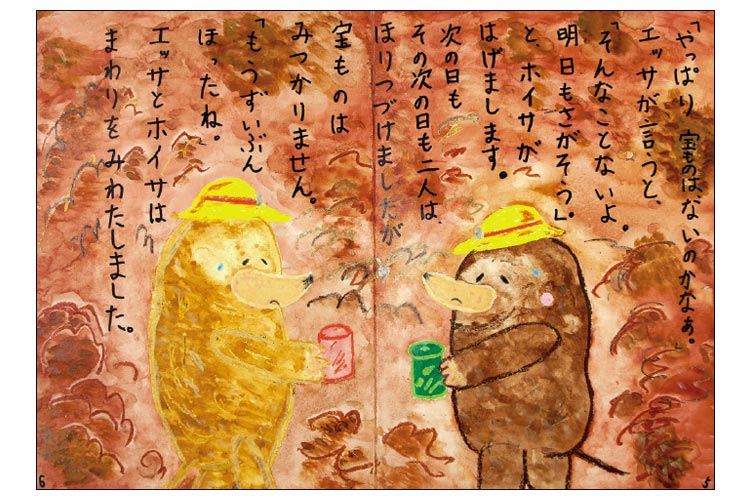 「やっぱり 宝ものは、ないのかなぁ。
エッサが言うと、
「そんなことないよ。
明日もさがそう」。
と、ホイサが
はげまします。
次の日も
その次の日も二人は、
ほりつづけましたが
宝ものは
みつかりません。
「もうずいぶん
ほったね。
エッサとホイサは
まわりをみわたしました。
6
5